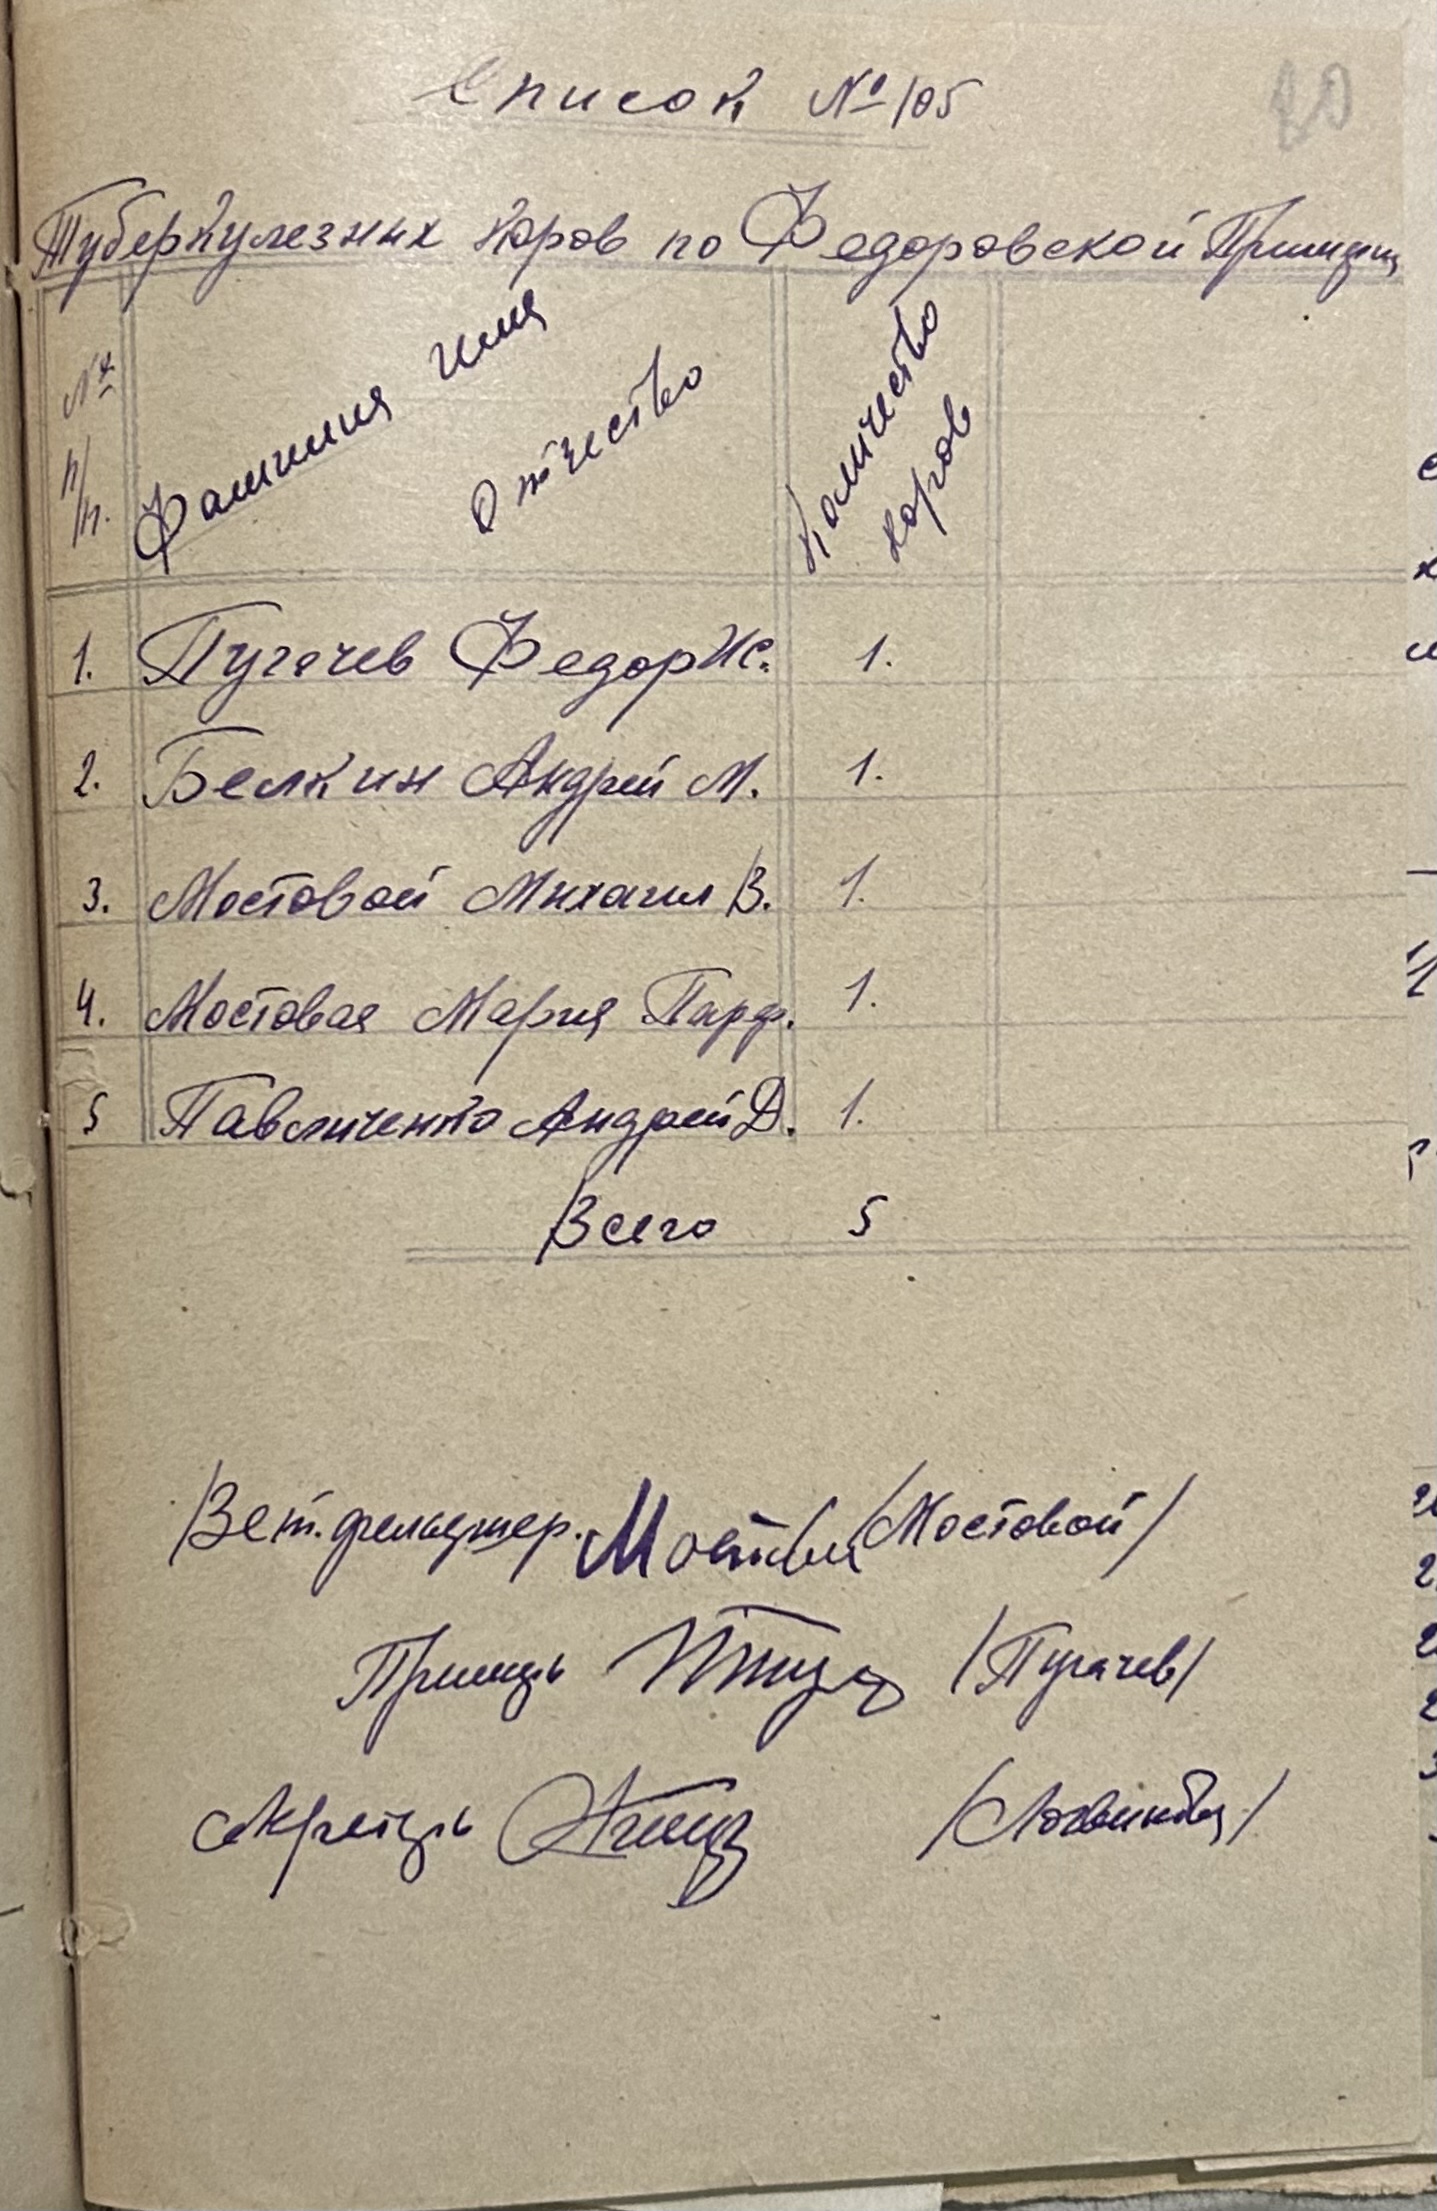 Список № 105
20
Туберкулезных коров по Федоровской Примэрии
№ п/п. Фамилия имя отчество Количество коров
1. Пугачев Федор Ис. 1.
2. Белкин Андрей М. 1.
3. Мостовой Михаил В. 1.
4. Мостовая Мария Парф. 1.
5 Павличенко Андрей Д. 1.
Всего 5
Вет. фельдшер. (Мостовой)
Примарь /Пугачев/
Секретарь